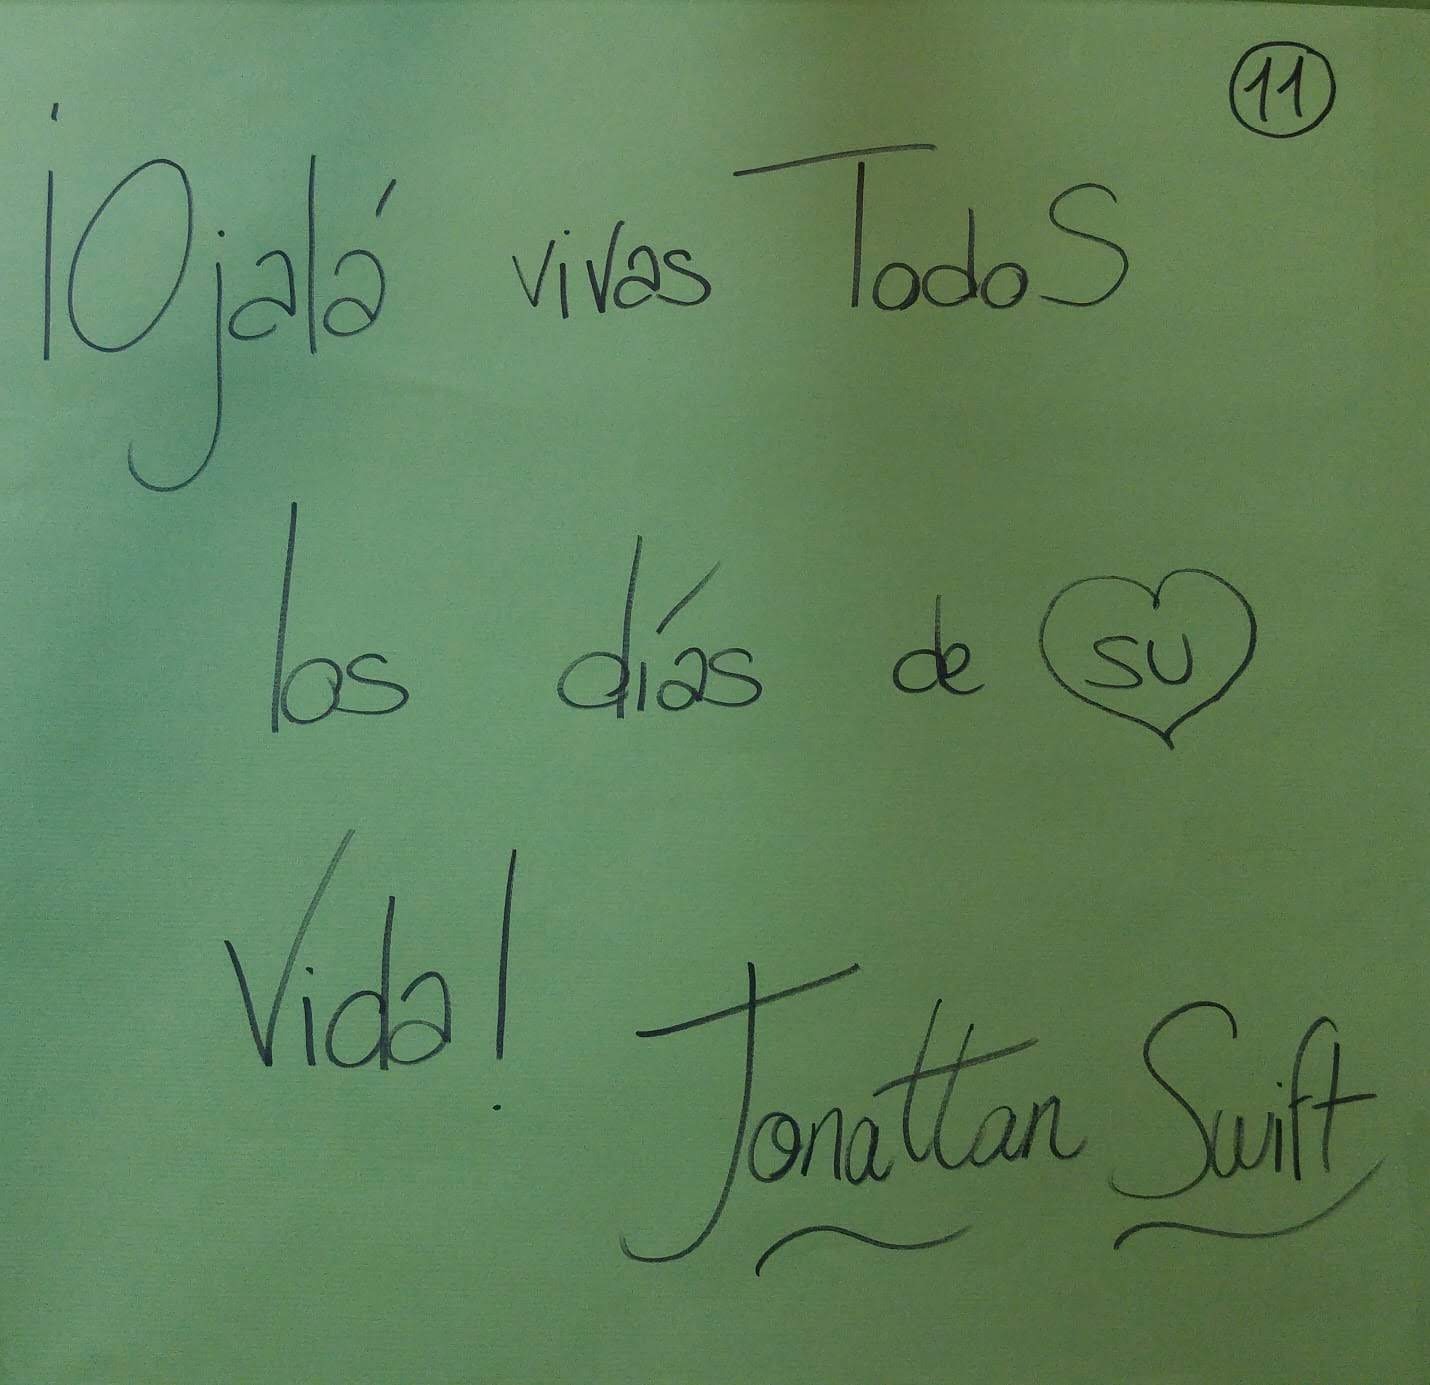 11
¡Ojalá vivas TodoS
los días de su
Vida!
Jonattan Swift